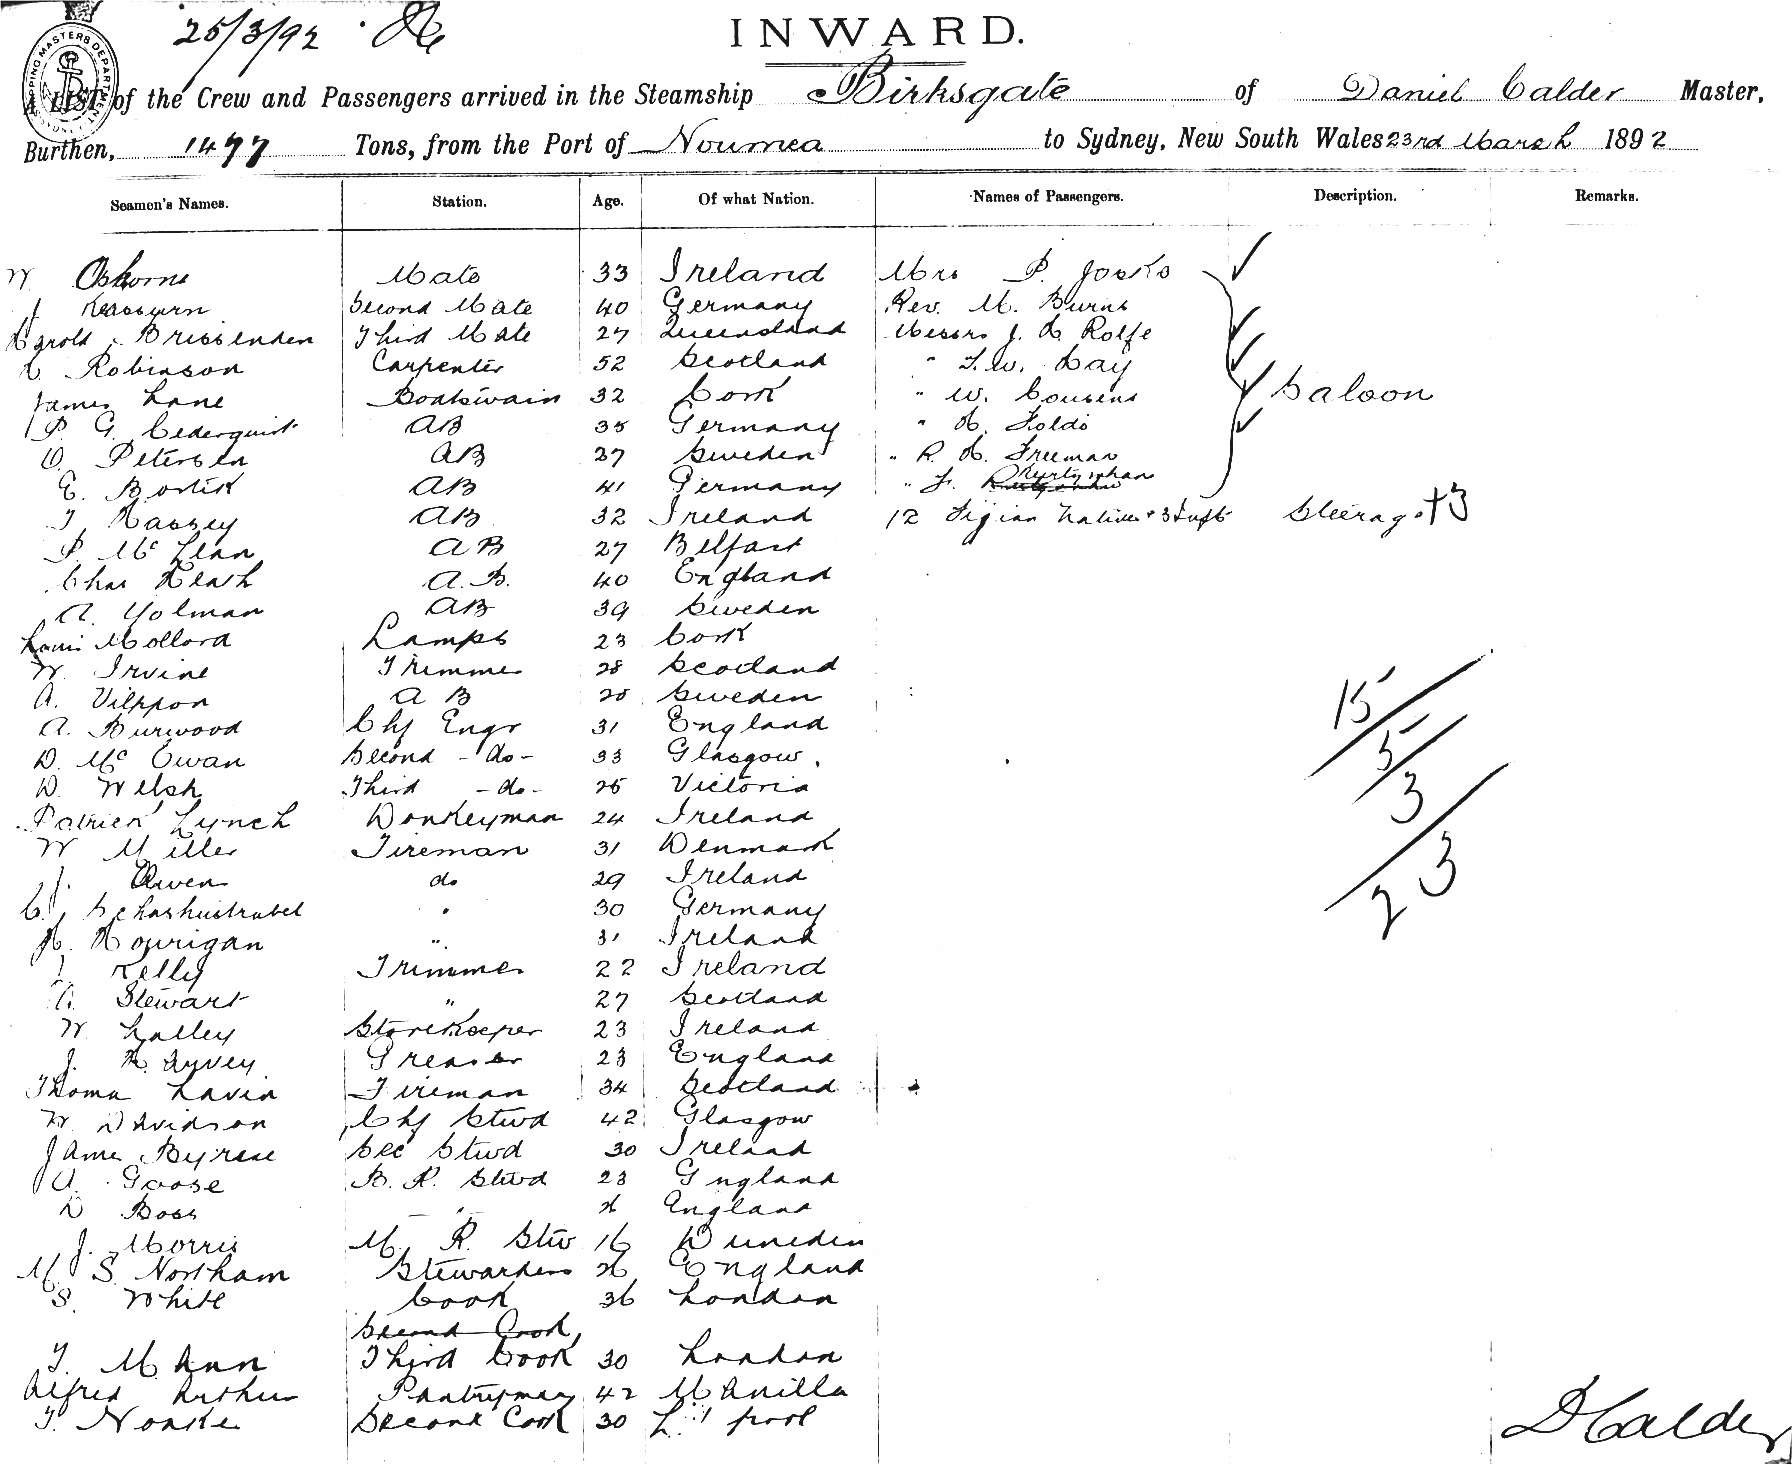 25/3/92
INWARD.
SHIPPING MASTERS DEPARTMENT SYDNEY
A LIST of the Crew and Passengers arrived in the Steamship Birksgate of Daniel Calder Master,
Burthen, 1477 Tons, from the Port of Noumea to Sydney, New South Wales 23rd March 1892
Seamen's Names. Station. Age. Of what Nation. Names of Passengers. Description. Remarks.
W. Osborne Mate 33 Ireland Mrs P. Joske
J. Second Mate 40 Germany Rev. M. Burns
Harold Brissenden Third Mate 27 Queensland Messrs J. H. Rolfe
D. Robinson Carpenter 52 Scotland " F. W. Day
James Lane Boatswain 32 Cork " W. Cousens Saloon
P. G. Cederquist AB 35 Germany " H. Foldi
O. Petersen AB 27 Sweden " R. H. Freeman
E. Bostik AB 41 Germany "
T. Massey AB 32 Ireland 12 Fijian Natives + 3 Steerage + 3
P. McLean AB 27 Belfast
Chas Heath A.B. 40 England
A. Yolman AB 39 Sweden
Louis Mollord Lamps 23 Cork
W. Irvine Trimmer 28 Scotland
A. Vilppon AB 20 Sweden
A. Burwood Chf Engr 31 England
D. McEwan Second - do - 33 Glasgow.
D. Welsh Third - do - 25 Victoria
Patrick Lynch Donkeyman 24 Ireland
W Miller Fireman 31 Denmark
J. Owen do 29 Ireland
C. " 30 Germany
H. Hourigan " 31 Ireland
J. Kelly Trimmer 22 Ireland
A. Stewart " 27 Scotland
W. Lalley Storekeeper 23 Ireland
J. Harvey Greaser 23 England
Thomas Lavin Fireman 34 Scotland
W. Davidson Chf Stwd 42 Glasgow
James Byrne Sec Stwd 30 Ireland
A. Goose B. R. Stwd 23 England
D Boss " England
J. Morris M. R. Stw 16 Dunedin
M. S. Northam Stewardess England
S. White Cook 36 London
Second Cook
T. Mann Third Cook 30 London
Alfred Arthur Pantryman 42 Manilla
T. Noake Second Cook 30 L'pool
15
5
3
23
D Calder